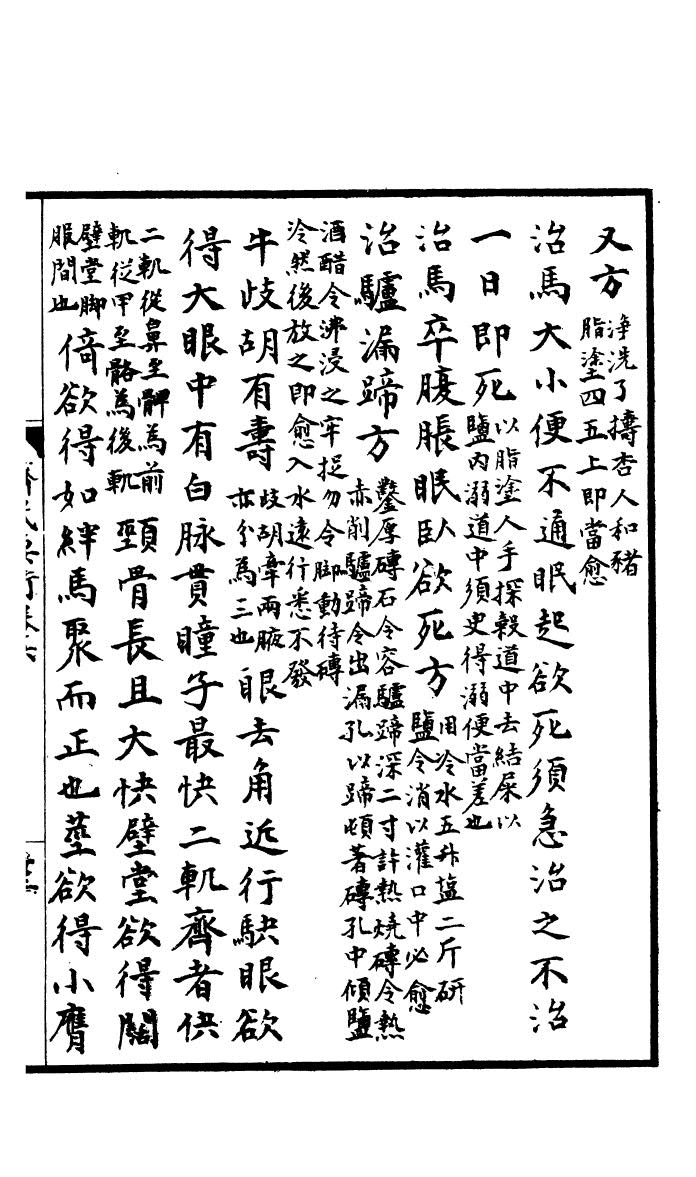 又方淨洗了擣杏人和豬脂塗四五上即當愈
治馬大小便不通眠起欲死須急治之不治
一日即死以脂塗人手探穀道中去結屎以鹽內溺道中須臾得溺便當差也
治馬卒腹脹眠臥欲死方用冷水五升塩二斤研鹽令消以灌口中必愈
治驢漏蹄方鑿厚磚石令容驢蹄深二寸許熱燒磚令熱赤削驢蹄令出漏孔以蹄頓著磚孔中傾鹽
酒醋令沸浸之牢捉勿令脚動待磚冷然後放之即愈入水遠行悉不發
牛歧胡有壽歧胡牽兩腋亦分為三也眼去角近行駃眼欲
得大眼中有白脉貫瞳子最快二軌齊者快
二軌從鼻至髀為前軌從甲至髂為後軌頸骨長且大快壁堂欲得闊
壁堂脚股間也倚欲得如絆馬聚而正也莖欲得小膺